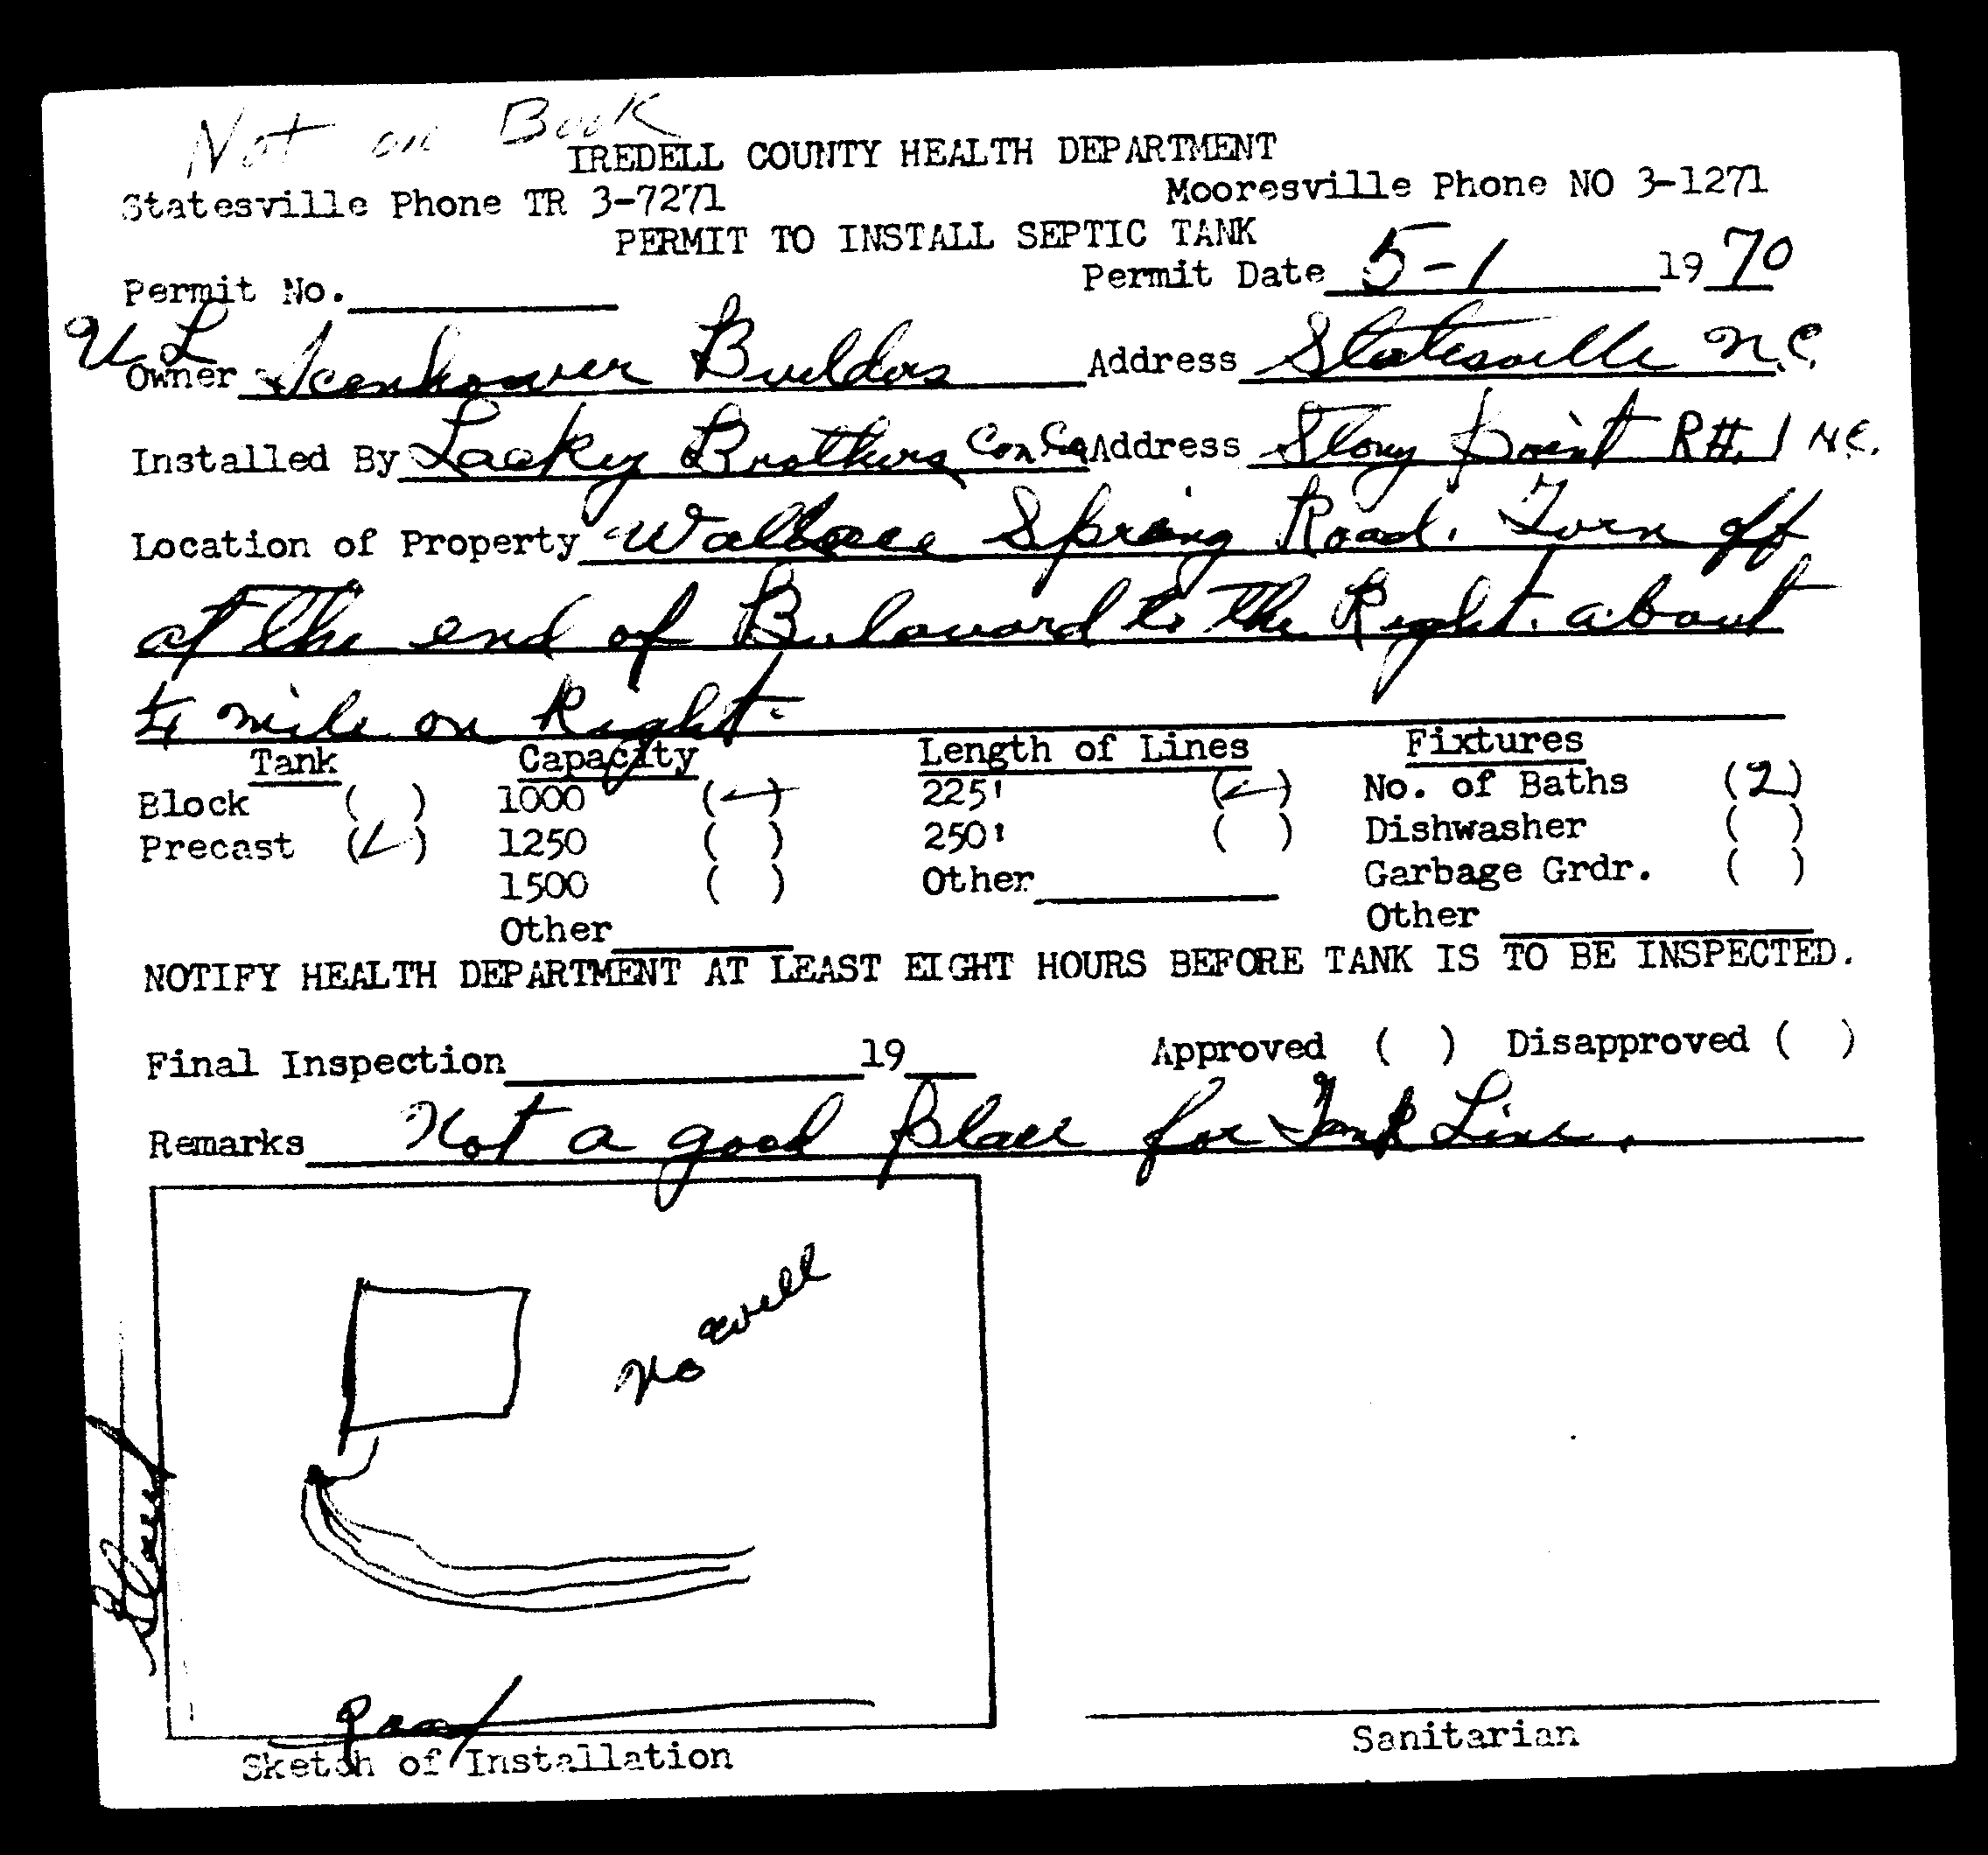 Not on Book
IREDELL COUNTY HEALTH DEPARTMENT
Statesville Phone TR 3-7271 Mooresville Phone NO 3-1271
PERMIT TO INSTALL SEPTIC TANK
Permit No. Permit Date 5-1 1970
Owner Builders Address Statesville N.C.
Installed By Lackey Brothers Con Co Address Stony Point R#. 1 N.C.
Location of Property Wallace Spring Road. Turn off
at the end of Bulavard to the Right. about
mile on Right.
Tank Capacity Length of Lines Fixtures
Block ( ) 1000 (✓) 225' (✓) No. of Baths (2)
Precast (✓) 1250 ( ) 250' ( ) Dishwasher ( )
1500 ( ) Other Garbage Grdr. ( )
Other Other
NOTIFY HEALTH DEPARTMENT AT LEAST EIGHT HOURS BEFORE TANK IS TO BE INSPECTED.
Final Inspection 19 Approved ( ) Disapproved ( )
Remarks Not a good place for Tank Line.
No well
Sketch of Installation
Sanitarian